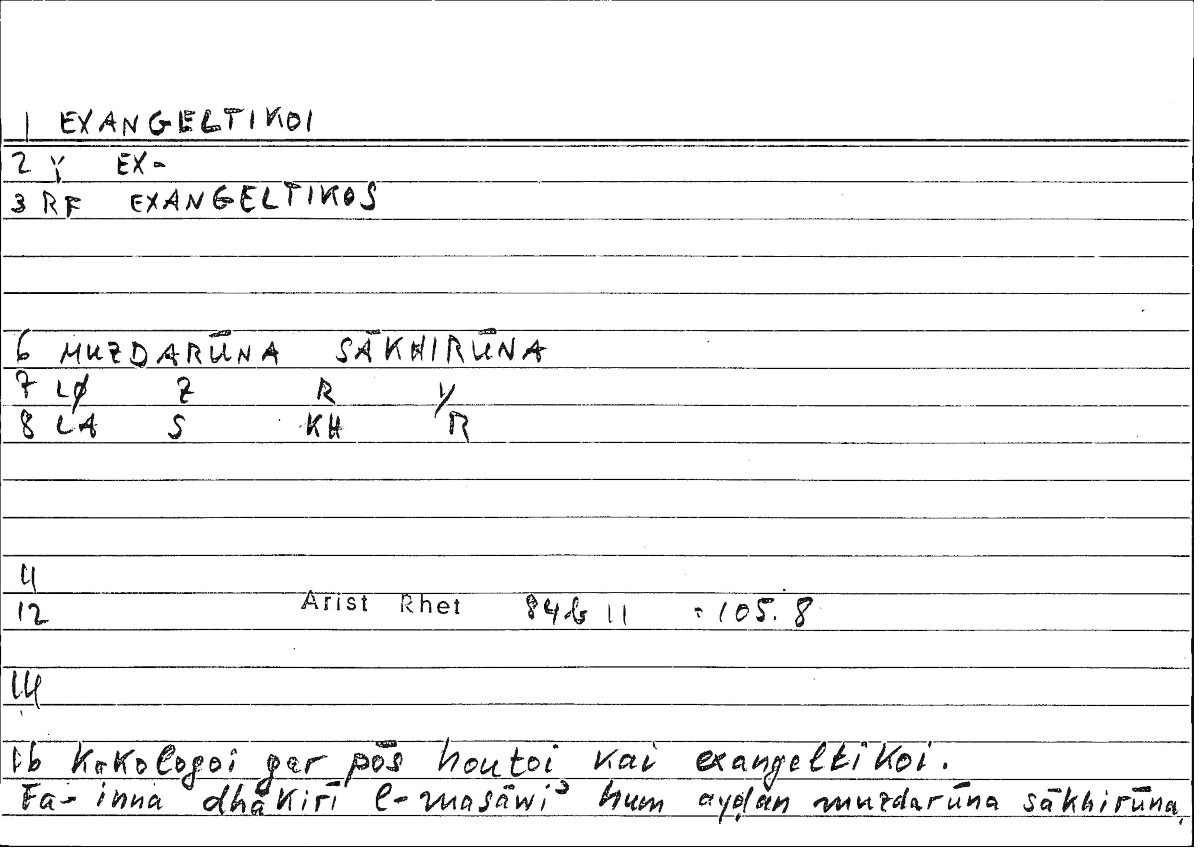 1 EXANGELTIKOI
2 Y EX-
3 RF EXANGELTIKOS
6 MUZDARŪNA SĀKHIRŪNA
7 LØ Z R Y
8 LA S KH R
11
12 Arist Rhet 84b 11 = 105.8
14
16 Kakologoi gar pōs houtoi kai exangeltikoi.
Fa- inna dhākirī l-masāwiʾ hum ayḍan muzdarūna sākhirūna.